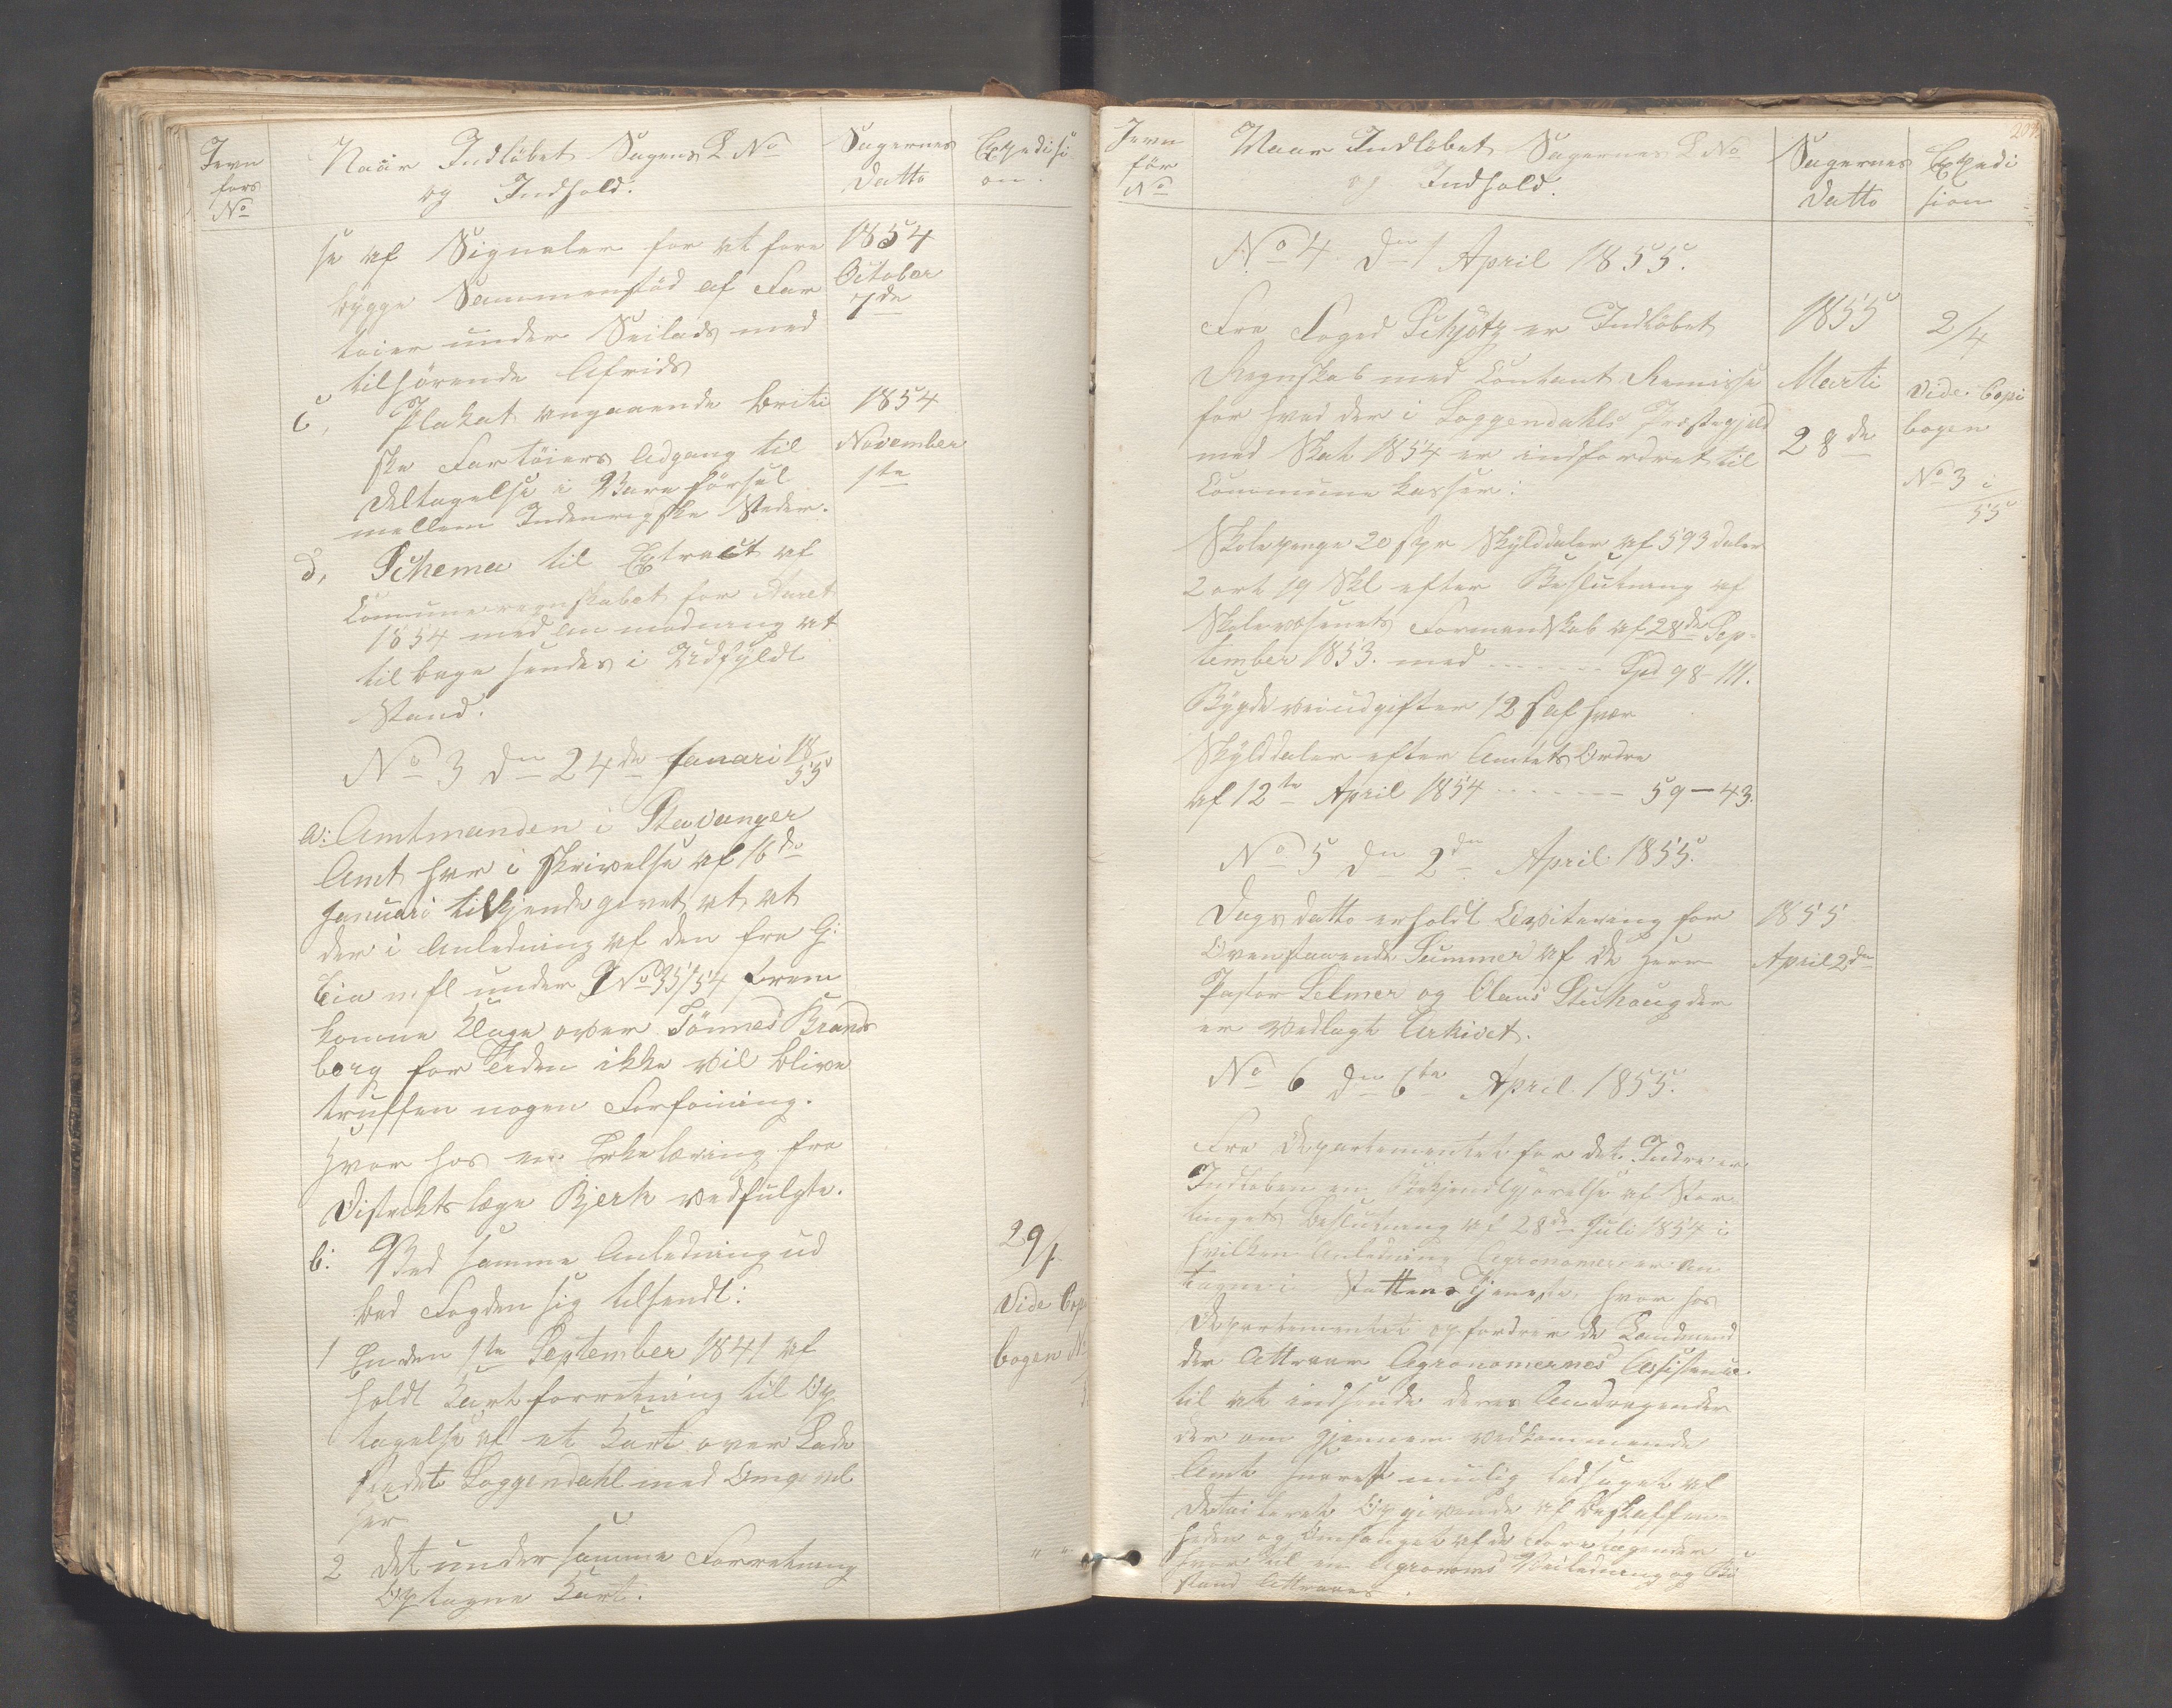 Jevn
förs
No
Naar Indlöbet Sagens L No
og Indhold.
Sagernes
Datto
Expedisi
on.
se af Signaler for at fore
bygge Sammenstöd af Far
töier under Seilads med
tilhörende Afrids
1854
October
7de
c, Plakat angaaende Briti
ske Fartöiers Adgang til
Deltagelse i Vareförsel
mellem Indenrigske Steder.
1854
November
1te
d, Schema til Extract af
Communeregnskabet for Aaret
1854 med Anmodning at
tilbage sendes i Udfyldt
Stand.
No 3 dn 24de Januari 18
55
a: Amtmanden i Stavanger
Amt har i skrivelse af 16de
Januari tilkjendegivet at at
der i Anledning af den fra G:
Eia m. fl under J No 35/54 frem
komne Klage over Tönnes Brands
berg for Tiden ikke vil blive
truffen nogen Forföining.
Hvorhos en Erkelæring fra
Distriktslæge Bjerk vedfulgte.
b: Ved samme Anledning ud
bad Fogden sig tilsendt:
29/1
Vide Cop
bogen N
1 En den 1te September 1841 af
holdt Kartforretning til Op
tagelse af et Kart over Lade
stedet Soggendahl med Omgivel
ser
2 det under samme Forretning
Optagne Kart.
207
Jevn
för
No
Naar Indlöbet Sagernes L No
og Indhold.
Sagernes
Datto
Expedi
sion
No 4 dn 1 April 1855.
Fra Foged Schjötz er Indlöbet
Regnskab med Contant Remisse
for hvad der i Soggendahls Præstegjeld
med Skat 1854 er indfordret til
Commune Kasser:
1855
Marti
28de
2/4
Vide Copi
bogen
No 3 i
55
Skolepenge 20 s pr Skylddaler af 593 daler
2 ort 19 Skl efter Beslutning af
Skolevæsenets Formandskab af 28de Sep-
tember 1853. med ------- Spd 98-111.
Bygdeveiudgifter 12 s af hver
Skylddaler efter Amtets Ordre
af 12te April 1854 ------- 59-43.
No 5 dn 2den April 1855.
Dags datto erholdt Qvitering for
Ovenstaaende Summer af de Herr
Pastor Selmer og Olaus Stuhaug der
er vedlagt Arkivet.
1855
April 2den
No 6 dn 6te April 1855.
Fra Departementet for det Indre er
Indloben en Bekjendtgjörelse af Stor
tingets Beslutning af 28de Juli 1854 i
hvilken Anledning Agronomer er An
tagne i Stattens Tjeneste, hvorhos
Departementet opfordrer de Landmænd
der Attraar Agronomernes Assistance
til at indsende deres Andragender
der om gjennem vedkommende
Amt snarest muelig ledsaget af
detailleret Opgivende af Beskaffen-
heden og Omfanget af de Foretagender
hvor til en Agronoms Veiledning og Bi
stand Attraaes.